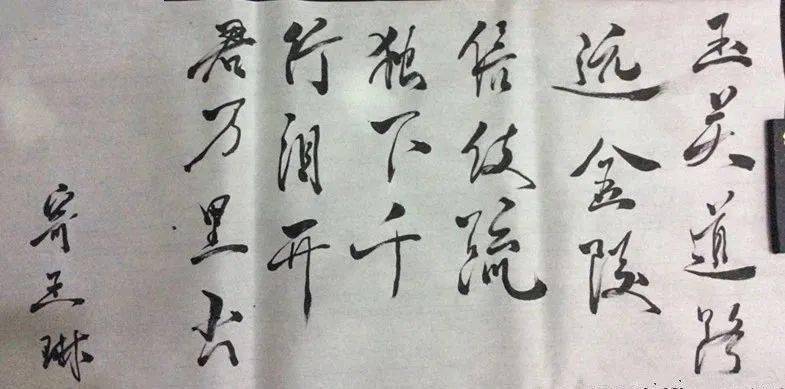 玉关道路
远金陵
信使疏
独下千
行泪开
君万里书
寄王琳